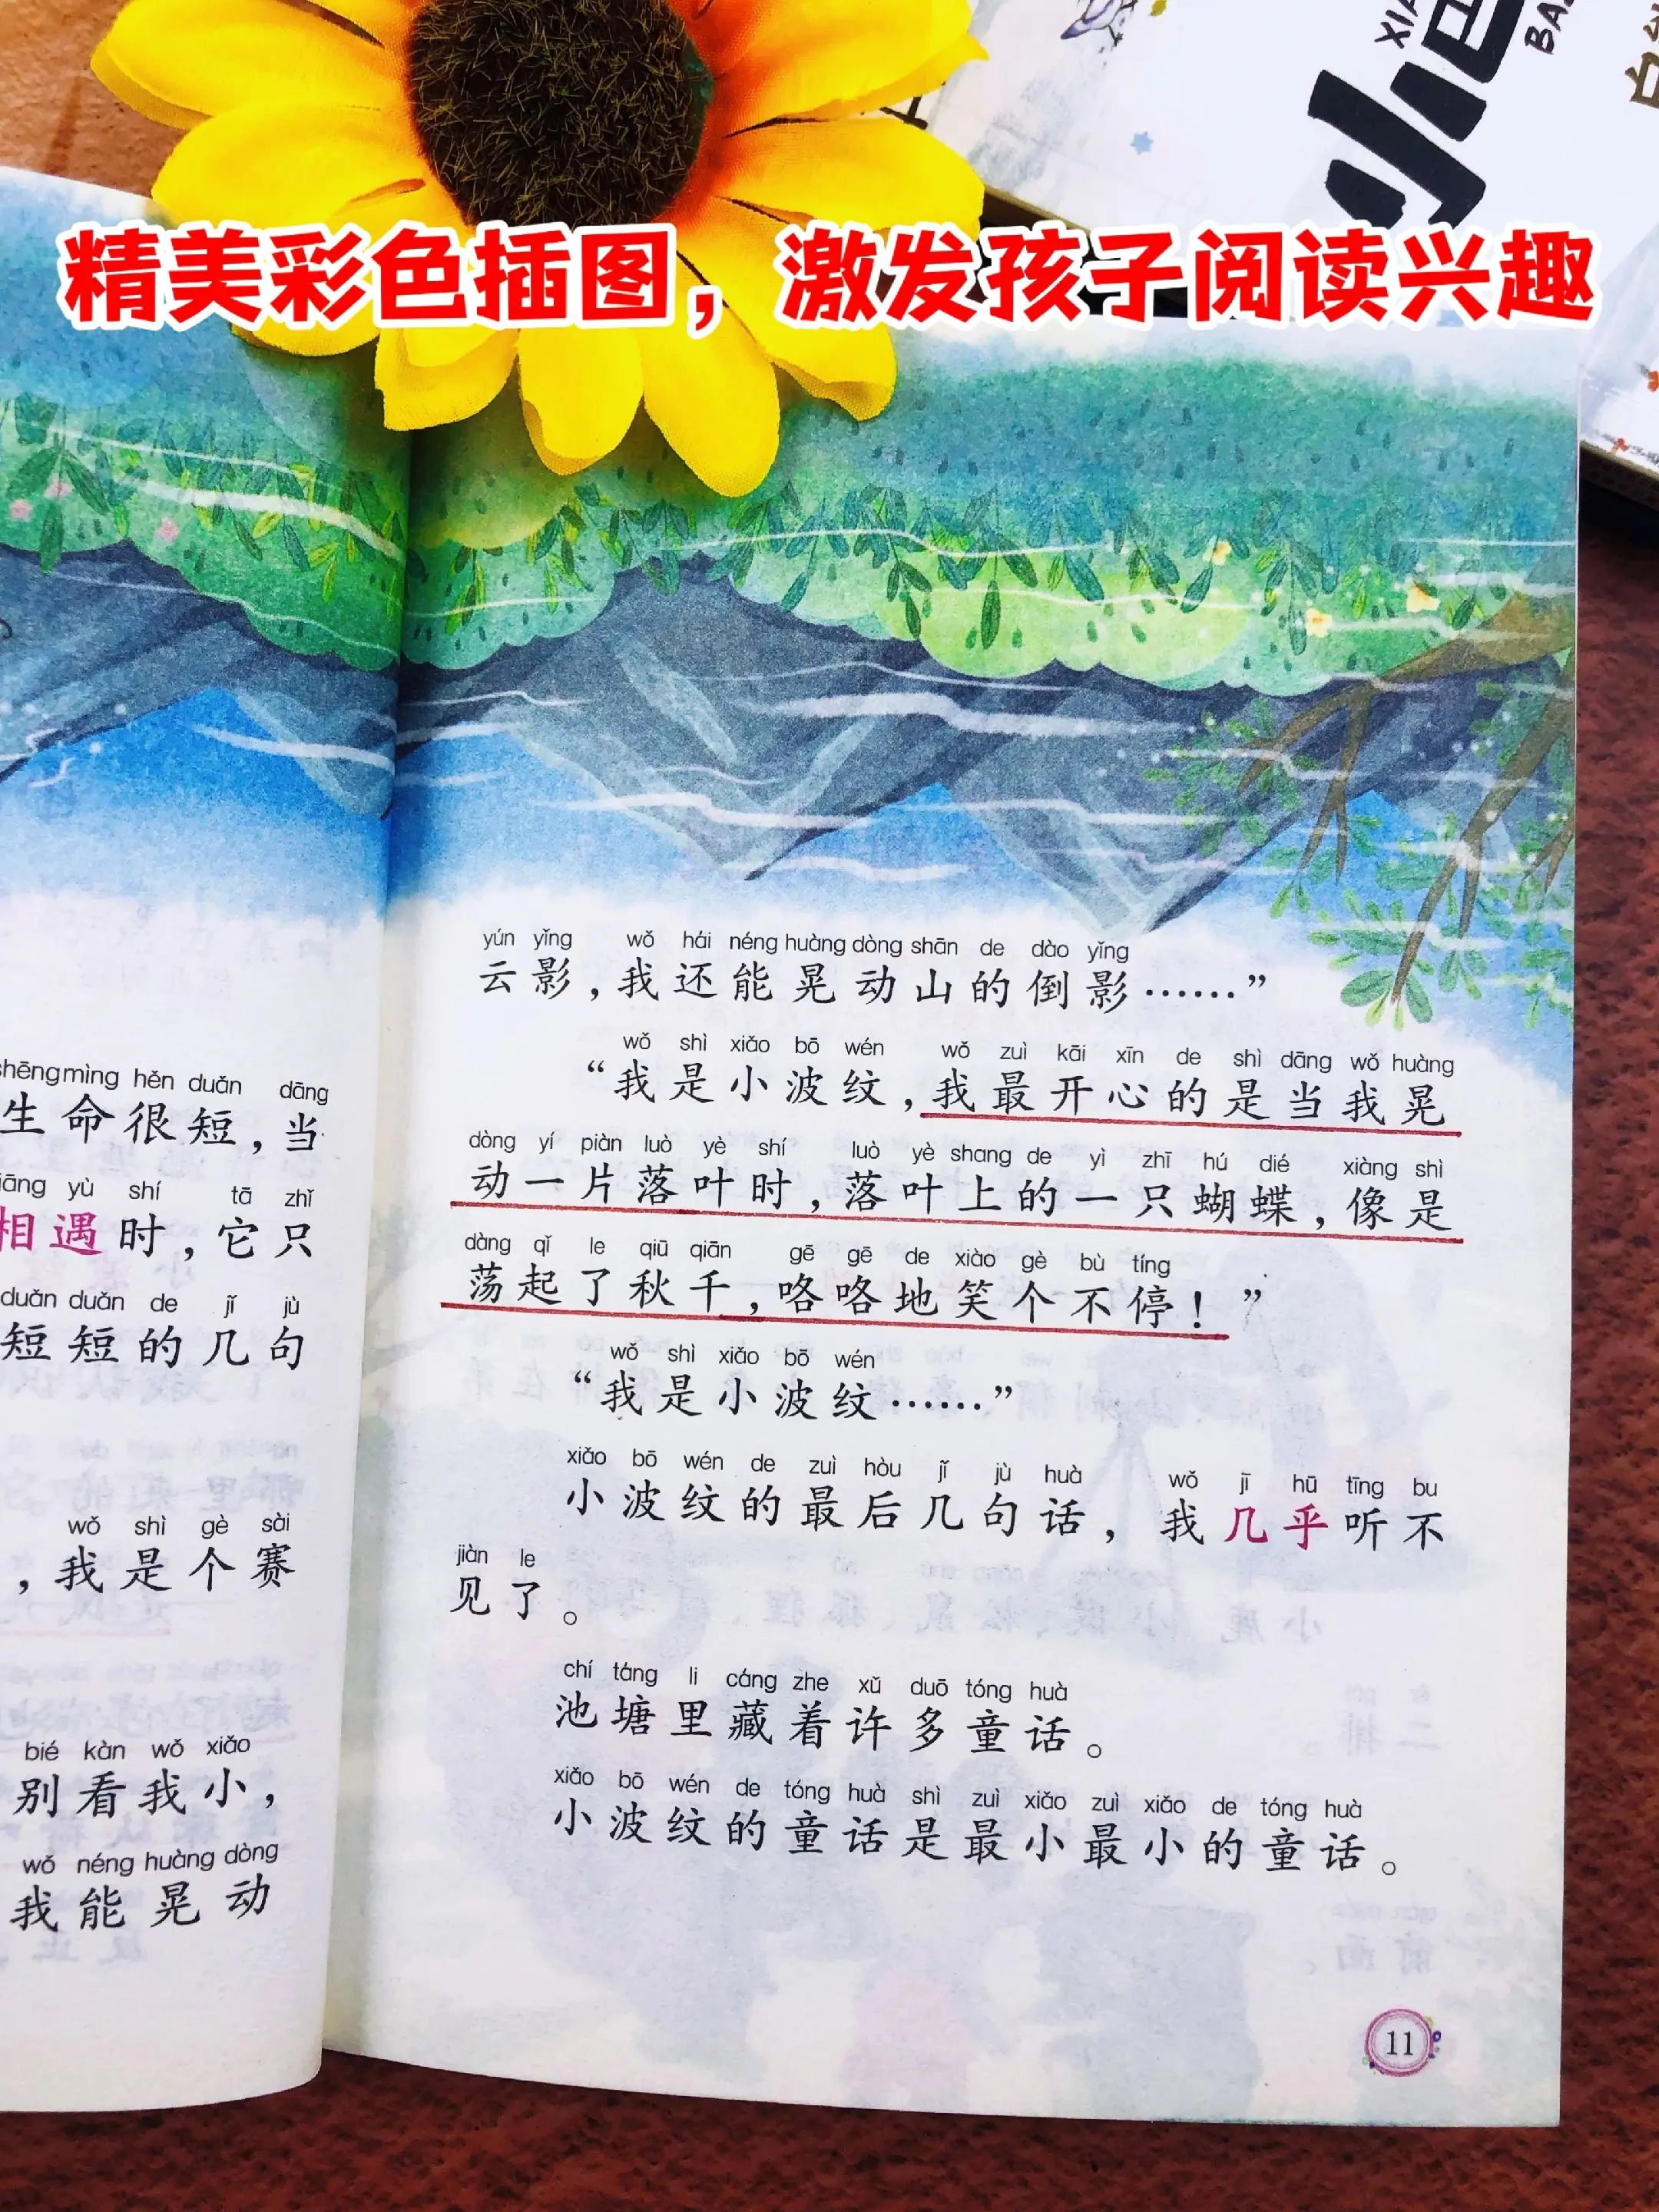 小巴
精美彩色插图，激发孩子阅读兴趣
shēngmìng hěn duǎn dāng
生命很短，当
yù shí tā zhǐ
相遇时，它只
duǎn duǎn de jǐ jù
短短的几句
wǒ shì gè sài
，我是个赛
bié kàn wǒ xiǎo
别看我小，
wǒ néng huàng dòng
我能晃动
yún yǐng wǒ hái néng huàng dòng shān de dào yǐng
云影，我还能晃动山的倒影……”
wǒ shì xiǎo bō wén wǒ zuì kāi xīn de shì dāng wǒ huàng
“我是小波纹，我最开心的是当我晃
dòng yí piàn luò yè shí luò yè shang de yì zhī hú dié xiàng shì
动一片落叶时，落叶上的一只蝴蝶，像是
dàng qǐ le qiū qiān gē gē de xiào gè bù tíng
荡起了秋千，咯咯地笑个不停！”
wǒ shì xiǎo bō wén
“我是小波纹……”
xiǎo bō wén de zuì hòu jǐ jù huà wǒ jī hū tīng bu
小波纹的最后几句话，我几乎听不
jiàn le
见了。
chí táng li cáng zhe xǔ duō tóng huà
池塘里藏着许多童话。
xiǎo bō wén de tóng huà shì zuì xiǎo zuì xiǎo de tóng huà
小波纹的童话是最小最小的童话。
11